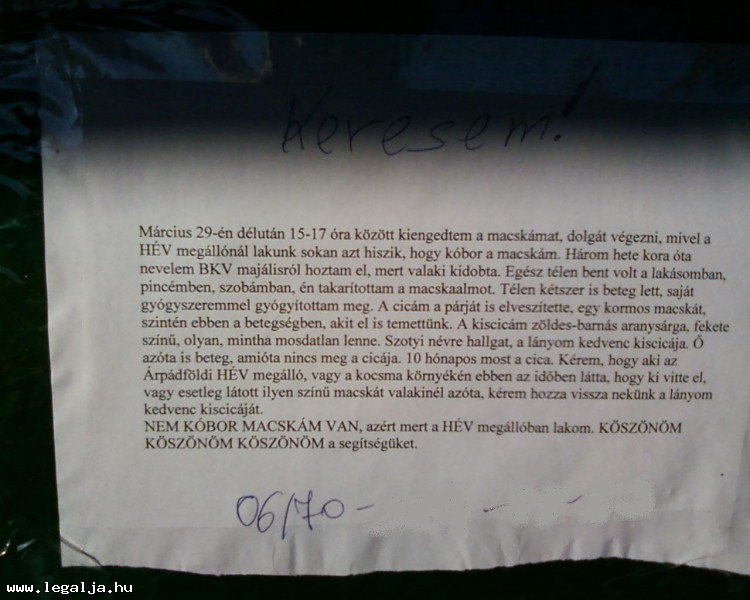 Keresem!
Március 29-én délután 15-17 óra között kiengedtem a macskámat, dolgát végezni, mivel a
HÉV megállónál lakunk sokan azt hiszik, hogy kóbor a macskám. Három hete kora óta
nevelem BKV majálisról hoztam el, mert valaki kidobta. Egész télen bent volt a lakásomban,
pincémben, szobámban, én takarítottam a macskaalmot. Télen kétszer is beteg lett, saját
gyógyszeremmel gyógyítottam meg. A cicám a párját is elveszítette, egy kormos macskát,
szintén ebben a betegségben, akit el is temettünk. A kiscicám zöldes-barnás aranysárga, fekete
színű, olyan, mintha mosdatlan lenne. Szotyi névre hallgat, a lányom kedvenc kiscicája. Ő
azóta is beteg, amióta nincs meg a cicája. 10 hónapos most a cica. Kérem, hogy aki az
Árpádföldi HÉV megálló, vagy a kocsma környékén ebben az időben látta, hogy ki vitte el,
vagy esetleg látott ilyen színű macskát valakinél azóta, kérem hozza vissza nekünk a lányom
kedvenc kiscicáját.
NEM KÓBOR MACSKÁM VAN, azért mert a HÉV megállóban lakom. KÖSZÖNÖM
KÖSZÖNÖM KÖSZÖNÖM a segítségüket.
06/70- - -
www.legalja.hu